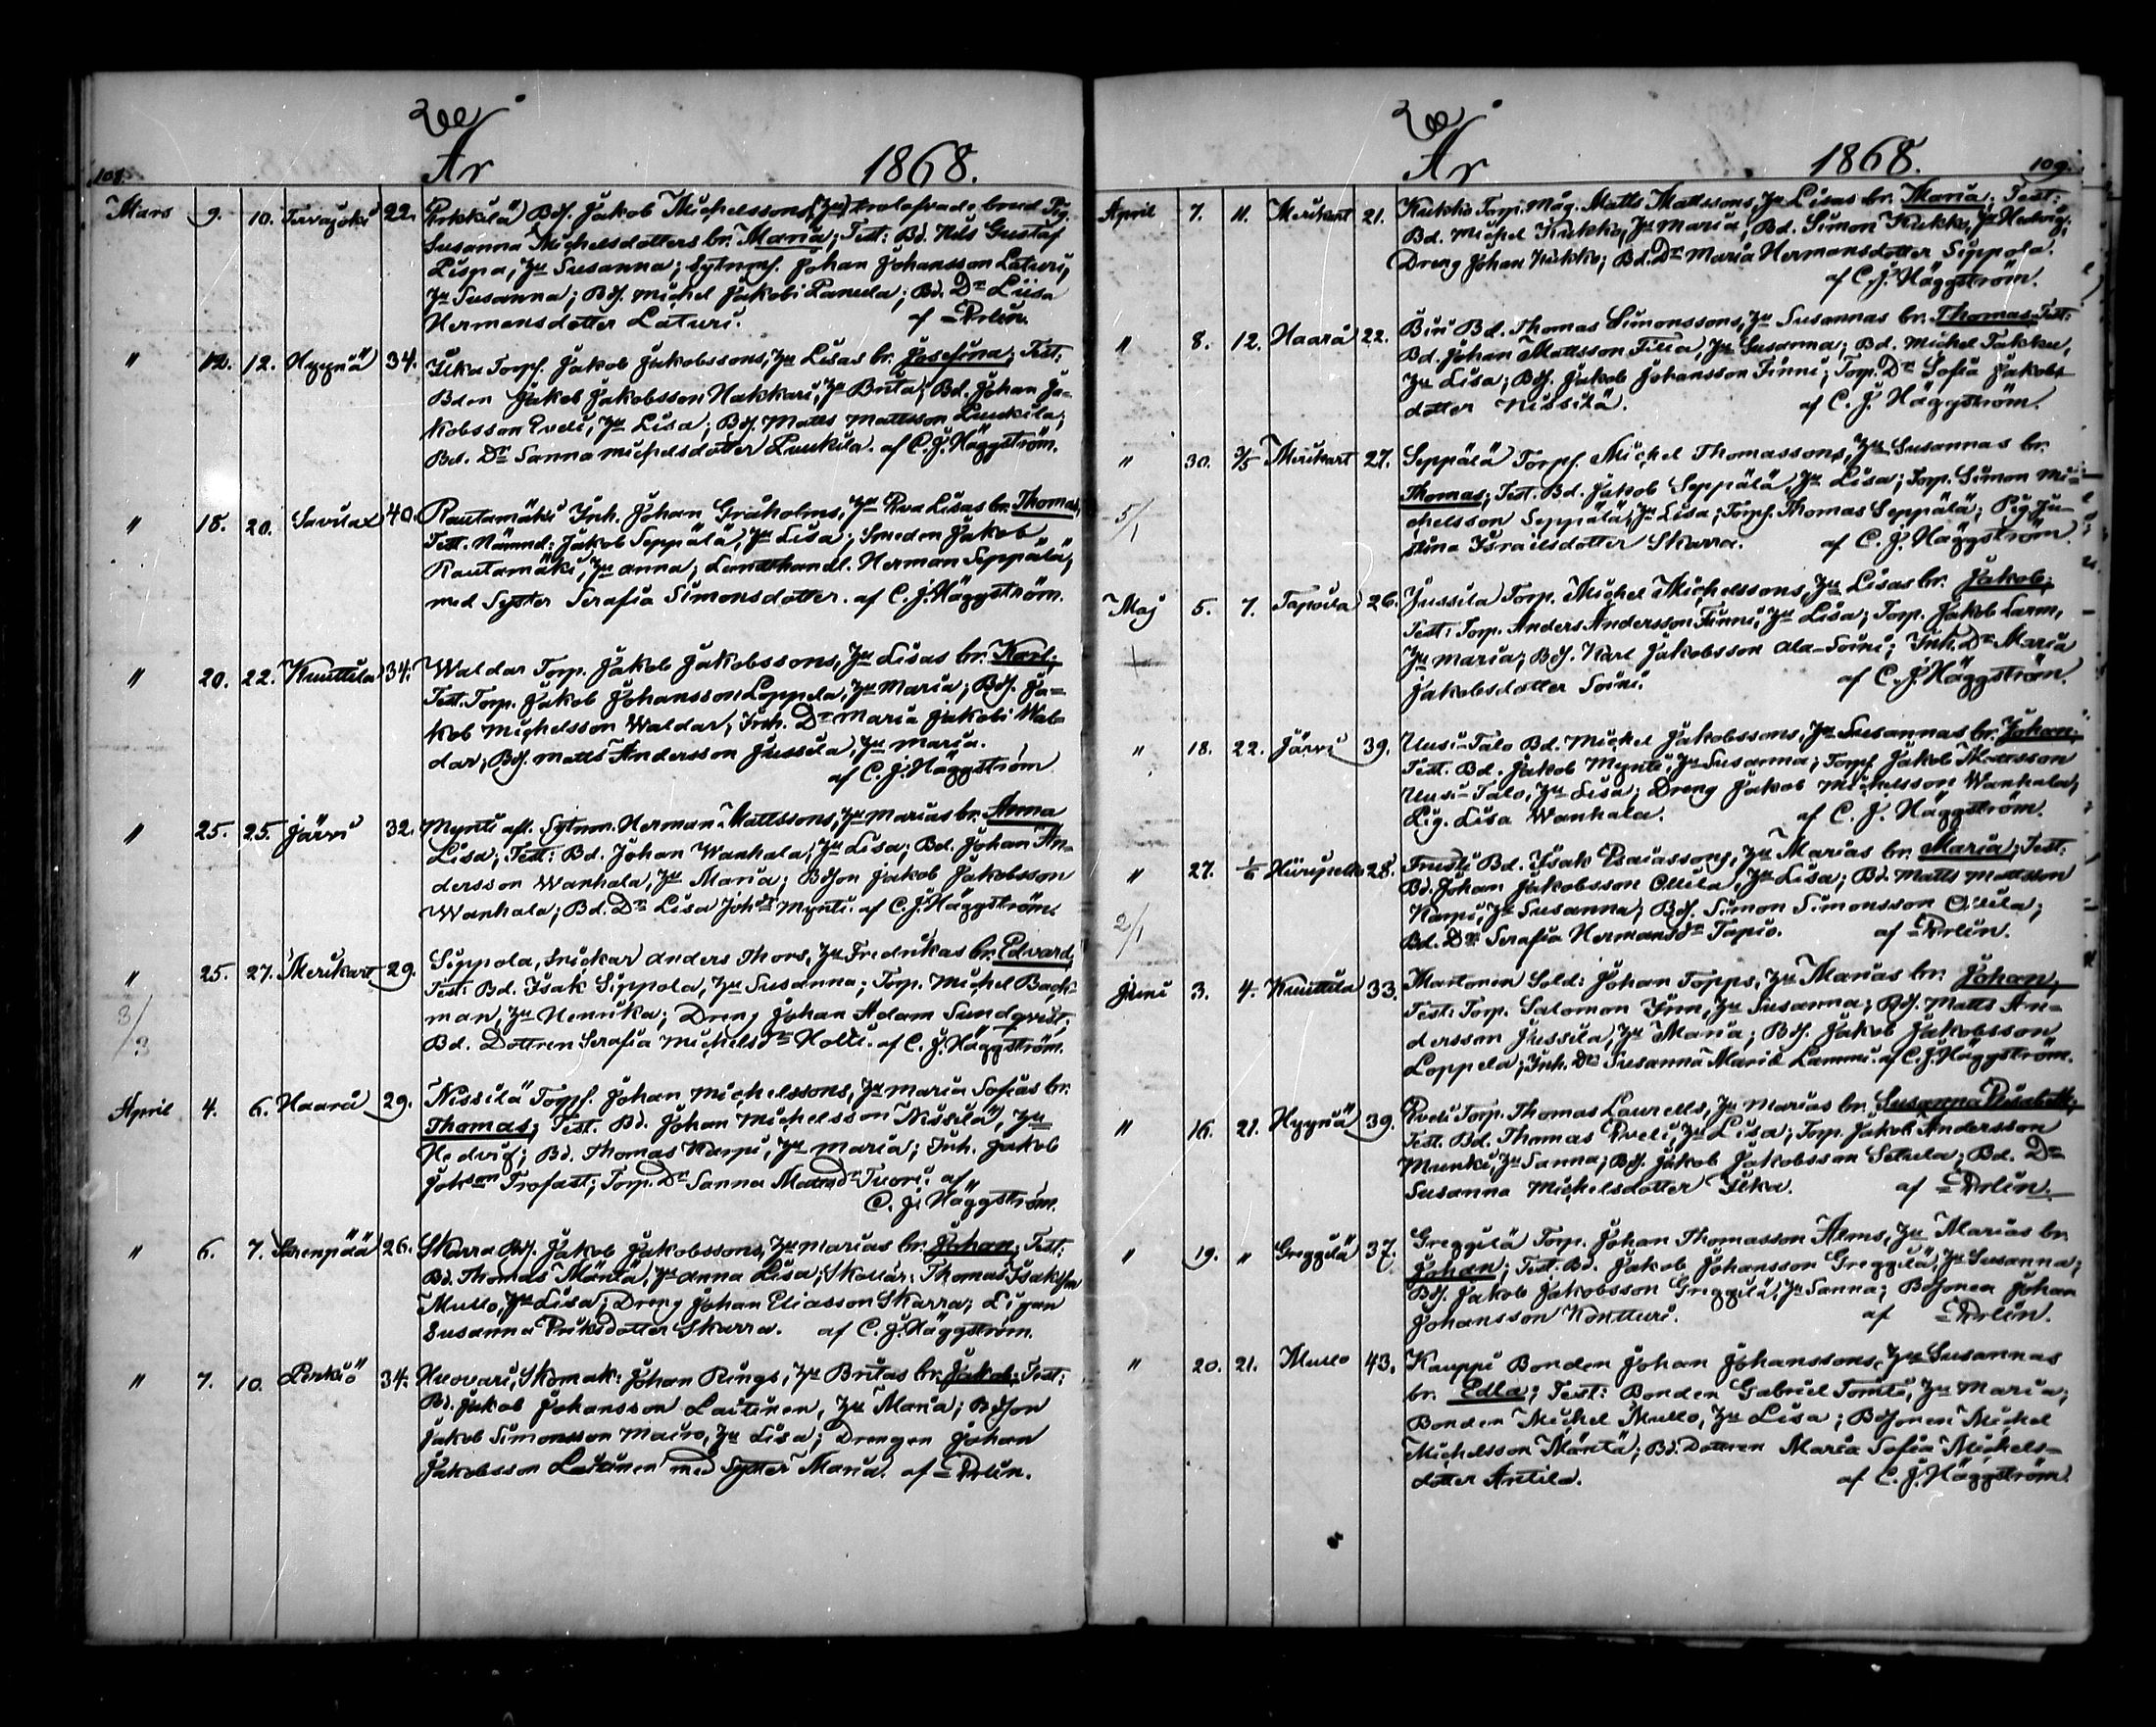 108.
År 1868.
Mars 9. 10. Tervajoki 22. Erkkilä Bds. Jakob Michelssons, (Ju) trolofvade brud Pig.
Susanna Michelsdotters br. Maria; Test: Bd. Nils Gustaf
Lispa, Ju Susanna; Sytnmss. Johan Johansson Laturi,
Ju Susanna; Bds. Michel Jakobi Panula; Bd. Dr Liisa
Hermansdotter Laturi. af Erlin.
" 12. 12. Hyyriä 34. Ilka Torpf. Jakob Jakobssons, Ju Lisas br. Josefina; Test.
Bden Jakob Jakobsson Hakkari, Ju Brita; Bd. Johan Ja-
kobsson Eveli, Ju Lisa; Bds. Matts Mattsson Luukila;
Bd. Dr Sanna Michelsdotter Luukila. af C. J. Häggström.
" 18. 20. Savilax 40. Rautamäki Inh. Johan Gråholms, Ju Eva Lisas br. Thomas;
Test. Nämnd: Jakob Seppälä, Ju Lisa; Smeden Jakob
Rautamäki, Ju Anna; Landthandl. Herman Seppälä,
med Syster Serafia Simonsdotter. af C. J. Häggström.
" 20. 22. Knuttila 34. Waldar Torp. Jakob Jakobssons, Ju Lisas br. Karl;
Test. Torp. Jakob Johansson Loppela, Ju Maria; Bds. Ja-
kob Michelsson Waldar, Inh. Dr Maria Jakobi Wal-
dar; Bds. Matts Andersson Jussila, Ju Maria.
af C. J. Häggström
" 25. 25. Järvi 32. Mynti afl. Sytnm. Herman Mattssons, Ju Marias br. Anna
Lisa; Test: Bd. Johan Wanhala, Ju Lisa; Bd. Johan An-
dersson Wanhala, Ju Maria; Bdson Jakob Jakobsson
Wanhala; Bd. Dr Lisa Johdr Mynti. af C. J. Häggström.
" 25. 27. Merikart 29. Sippola, Snickar Anders Thors, Ju Fredrikas br. Edvard;
3/3 Test: Bd. Isak Sippola, Ju Susanna; Torp. Michel Back-
man, Ju Henrika; Dreng Johan Adam Sundqvist;
Bd. Dottren Serafia Michelsdr Holli. af C. J. Häggström.
April 4. 6. Haarå 29. Nissilä Torpf. Johan Michelssons, Ju Maria Sofias br.
Thomas; Test. Bd. Johan Michelsson Nissilä, Ju
Hedvig; Bd. Thomas Karpi, Ju Maria; Inh. Jakob
Johsson Trofast; Torp. Dr Sanna Mattsdr Tuori. af
C. J. Häggström.
" 6. 7. Sorenpää 26. Skarra Bds. Jakob Jakobssons, Ju Marias br. Johan; Test:
Bd. Thomas Mäntä, Ju Anna Lisa; Skollär. Thomas Isaksson
Mullo, Ju Lisa; Dreng Johan Eliasson Skarra; Pigan
Susanna Eriksdotter Skarra. af C. J. Häggström.
" 7. 10. Perkiö 34. Huovari, Skomak: Johan Rings, Ju Britas br. Jakob; Test:
Bd. Jakob Johansson Laitinen, Ju Maria; Bdson
Jakob Simonsson Mairo, Ju Lisa; Drengen Johan
Jakobsson Laitinen med Syster Maria. af Erlin.
År 1868. 109.
April 7. 11. Merikart 21. Kukko Torp. Måg. Matts Mattssons, Ju Lisas br. Maria; Test:
Bd. Michel Kukko, Ju Maria; Bd. Simon Kukko, Ju Hedvig;
Dreng Johan Kukko; Bd. Dr Maria Hermansdotter Sippola.
af C. J. Häggström.
" 8. 12. Haarå 22. Biri Bd. Thomas Simonssons, Ju Susannas br. Thomas; Test:
Bd. Johan Mattsson Tiira, Ju Susanna; Bd. Michel Takku,
Ju Lisa; Bds. Jakob Johansson Finni; Torp. Dr Sofia Jakobs-
dotter Nissilä. af C. J. Häggström.
" 30. 3/5 Merikart 27. Seppälä Torpf. Michel Thomassons, Ju Susannas br.
5/1 Thomas; Test. Bd. Jakob Seppälä, Ju Lisa; Torp. Simon Mi-
chelsson Seppälä, Ju Lisa; Torpf. Thomas Seppälä; Pig. Ju-
stina Israilsdotter Skarra. af C. J. Häggström.
Maj 5. 7. Tapoila 26. Jussila Torp. Michel Michelssons, Ju Lisas br. Jakob;
Test: Torp. Anders Andersson Finni, Ju Lisa; Torp. Jakob Larm,
Ju Maria; Bds. Karl Jakobsson Ala-Soini; Inh. Dr Maria
Jakobsdotter Soini. af C. J. Häggström.
" 18. 22. Järvi 39. Uusi-Talo Bd. Michel Jakobssons, Ju Susannas br. Johan;
Test. Bd. Jakob Mynti, Ju Susanna; Torpf. Jakob
Uusi-Talo, Ju Lisa; Dreng Jakob Michelsson Wanhala;
Pig. Lisa Wanhala. af C. J. Häggström.
" 27. 1/6 Hiiripelto 28. Trusti Bd. Isak Esaiassons, Ju Marias br. Maria; Test:
2/1 Bd. Johan Jakobsson Ollila, Ju Lisa; Bd. Matts Mattsson
Karpi, Ju Susanna; Bds. Simon Simonsson Ollila;
Bd. Dr. Serafia Hermansdr Tapio. af Erlin.
Juni 3. 4. Knuttila 33. Martonen Sold: Johan Topps, Ju Marias br. Johan;
Test: Torp. Salomon Finn, Ju Susanna; Bds. Matts An-
dersson Jussila, Ju Maria; Bds. Jakob Jakobsson
Loppela; Inh. Dr Susanna Maria Lammi. af C. J. Häggström.
" 16. 21. Hyyriä 39. Eveli Torp. Thomas Laurells, Ju Marias br. Susanna Elisabeth;
Test. Bd. Thomas Eveli, Ju Lisa; Torp. Jakob Andersson
Munki, Ju Sanna; Bds. Jakob Jakobsson Setula; Bd. Dr
Susanna Michelsdotter Ilka. af Erlin.
" 19. " Greggilä 37. Greggilä Torp. Johan Thomasson Alms, Ju Marias br.
Johan; Test. Bd. Jakob Johansson Greggilä, Ju Susanna;
Bds. Jakob Jakobsson Greggilä, Ju Sanna; Bdsonen Johan
Johansson Kontturi. af Erlin.
" 20. 21. Mullo 43. Kauppi Bonden Johan Johanssons, Ju Susannas
br. Edla; Test: Bonden Gabriel Tomti, Ju Maria;
Bonden Michel Mullo, Ju Lisa; Bdsonen Michel
Michelsson Mäntä; Bd. Dottren Maria Sofia Michels-
dotter Antila. af C. J. Häggström.